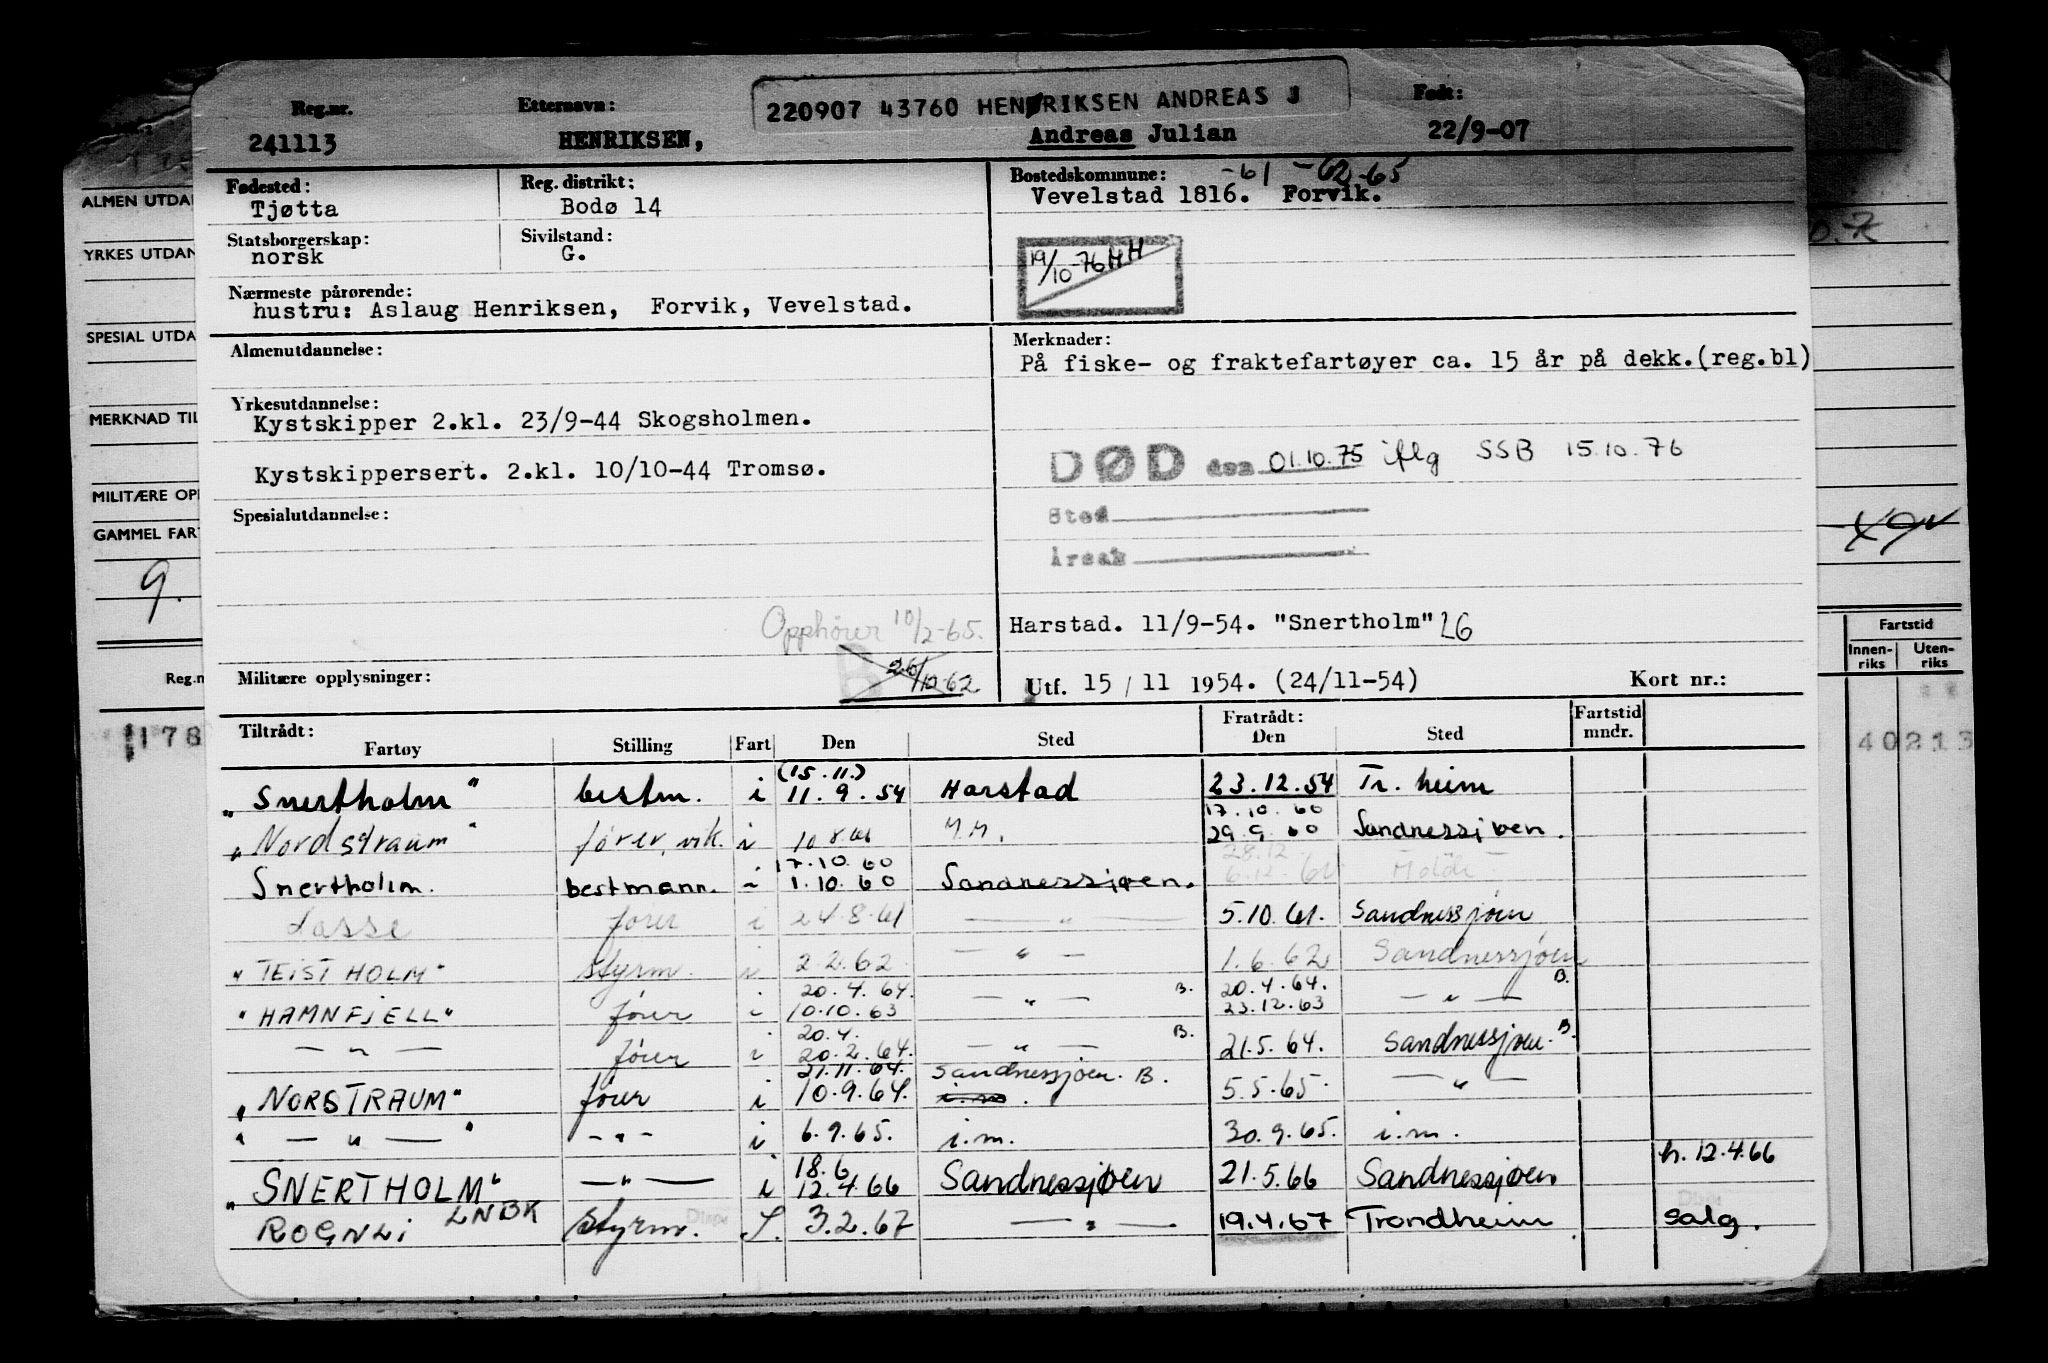 220907 43760 HENRIKSEN ANDREAS J
Reg.nr. Etternavn: Født:
241113 HENRIKSEN, Andreas Julian 22/9-07
Fødested: Reg. distrikt: Bostedskommune: -61 -62-65
Tjøtta Bodø 14 Vevelstad 1816. Forvik.
Statsborgerskap: Sivilstand:
norsk G.
19/10 76 HH
Nærmeste pårørende:
hustru: Aslaug Henriksen, Forvik, Vevelstad.
Almenutdannelse: Merknader:
På fiske- og fraktefartøyer ca. 15 år på dekk.(reg.bl)
Yrkesutdannelse:
Kystskipper 2.kl. 23/9-44 Skogsholmen.
Kystskippersert. 2.kl. 10/10-44 Tromsø.
DØD den 01.10.75 iflg SSB 15.10.76
Spesialutdannelse:
Sted
Årsak
Opphører 10/2-65.
Harstad. 11/9-54. "Snertholm" LG
Militære opplysninger: B 26/10-62
Utf. 15/11 1954. (24/11-54) Kort nr.:
Tiltrådt: Fratrådt: Fartstid
Fartøy Stilling Fart Den Sted Den Sted mndr.
(15.11.)
"Snertholm" bestm. i 11.9.54 Harstad 23.12.54 Tr.heim
17.10.60
"Nordstraum" fører, vik. i 10 8 M.M. 29.9.60 Sandnessjøen.
17.10.60 28.12
Snertholm. bestmann. i 1.10.60 Sandnessjøen. 6.12. Molde
Lasse fører i 24.8.61 — " — 5.10.61. Sandnessjøen
"TEISTHOLM" styrm. i 2.2.62 — " — 1.6.62 Sandnessjøen
20.4.64. B. 20.4.64. B.
"HAMNFJELL" fører i 10.10.63 — " — 23.12.63 — " —
20.4. B.
— " — fører i 20.2.64. — " — 21.5.64. Sandnessjøen. B.
21.11.64. Sandnessjøen. B.
"NORSTRAUM" fører i 10.9.64. i.m. 5.5.65. — " —
" — " — " - " - i 6.9.65. i.m. 30.9.65. i.m.
18.6 h. 12.4.66
"SNERTHOLM" — " — i 12.4.66 Sandnessjøen 21.5.66 Sandnessjøen
ROGNLI LNBK styrm. Disp S. 3.2.67 — " — 19.4.67 Trondheim. Disp salg.
ALMEN UTDA
YRKES UTDAN
SPESIAL UTDA
MERKNAD TIL
MILITÆRE OPP
GAMMEL FAR
9.
Reg.n
178
Fartstid
Innen-riks Uten-riks
40213